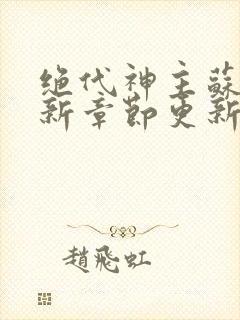 绝代神主蘇
新章節更新
趙飛虹